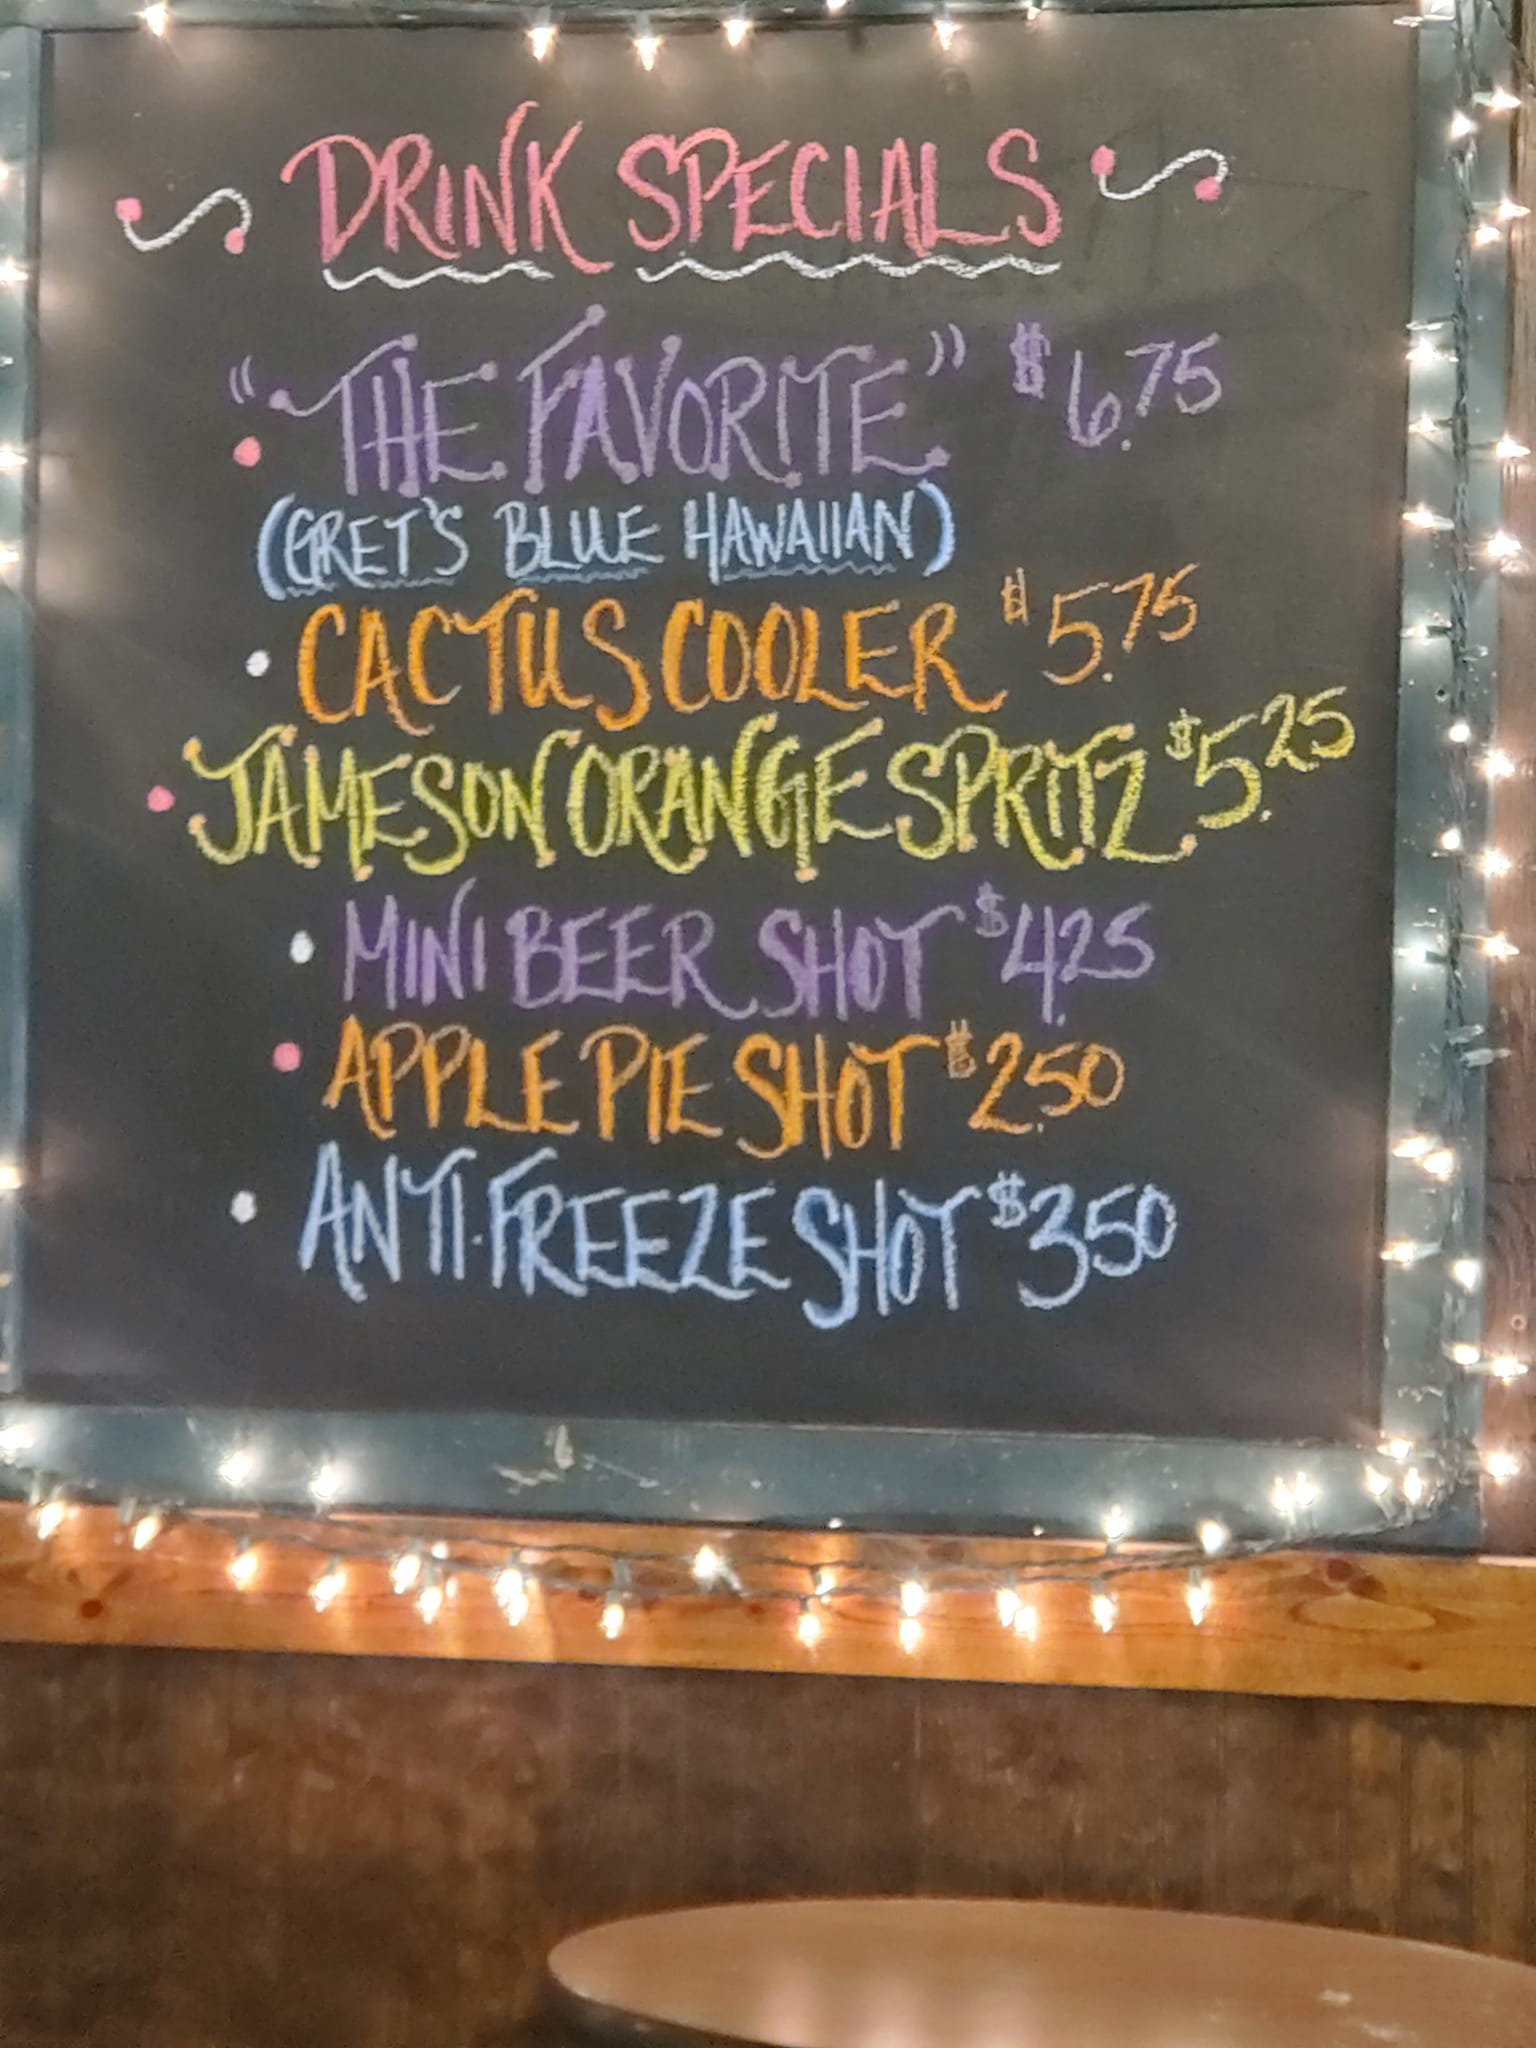 DRINK SPECIALS
"THE FAVORITE" $6.75
(GRET'S BLUE HAWAIIAN)
CACTUS COOLER $5.75
JAMESON ORANGE SPRITZ $5.25
MINI BEER SHOT $4.25
APPLE PIE SHOT $2.50
ANTI-FREEZE SHOT $3.50